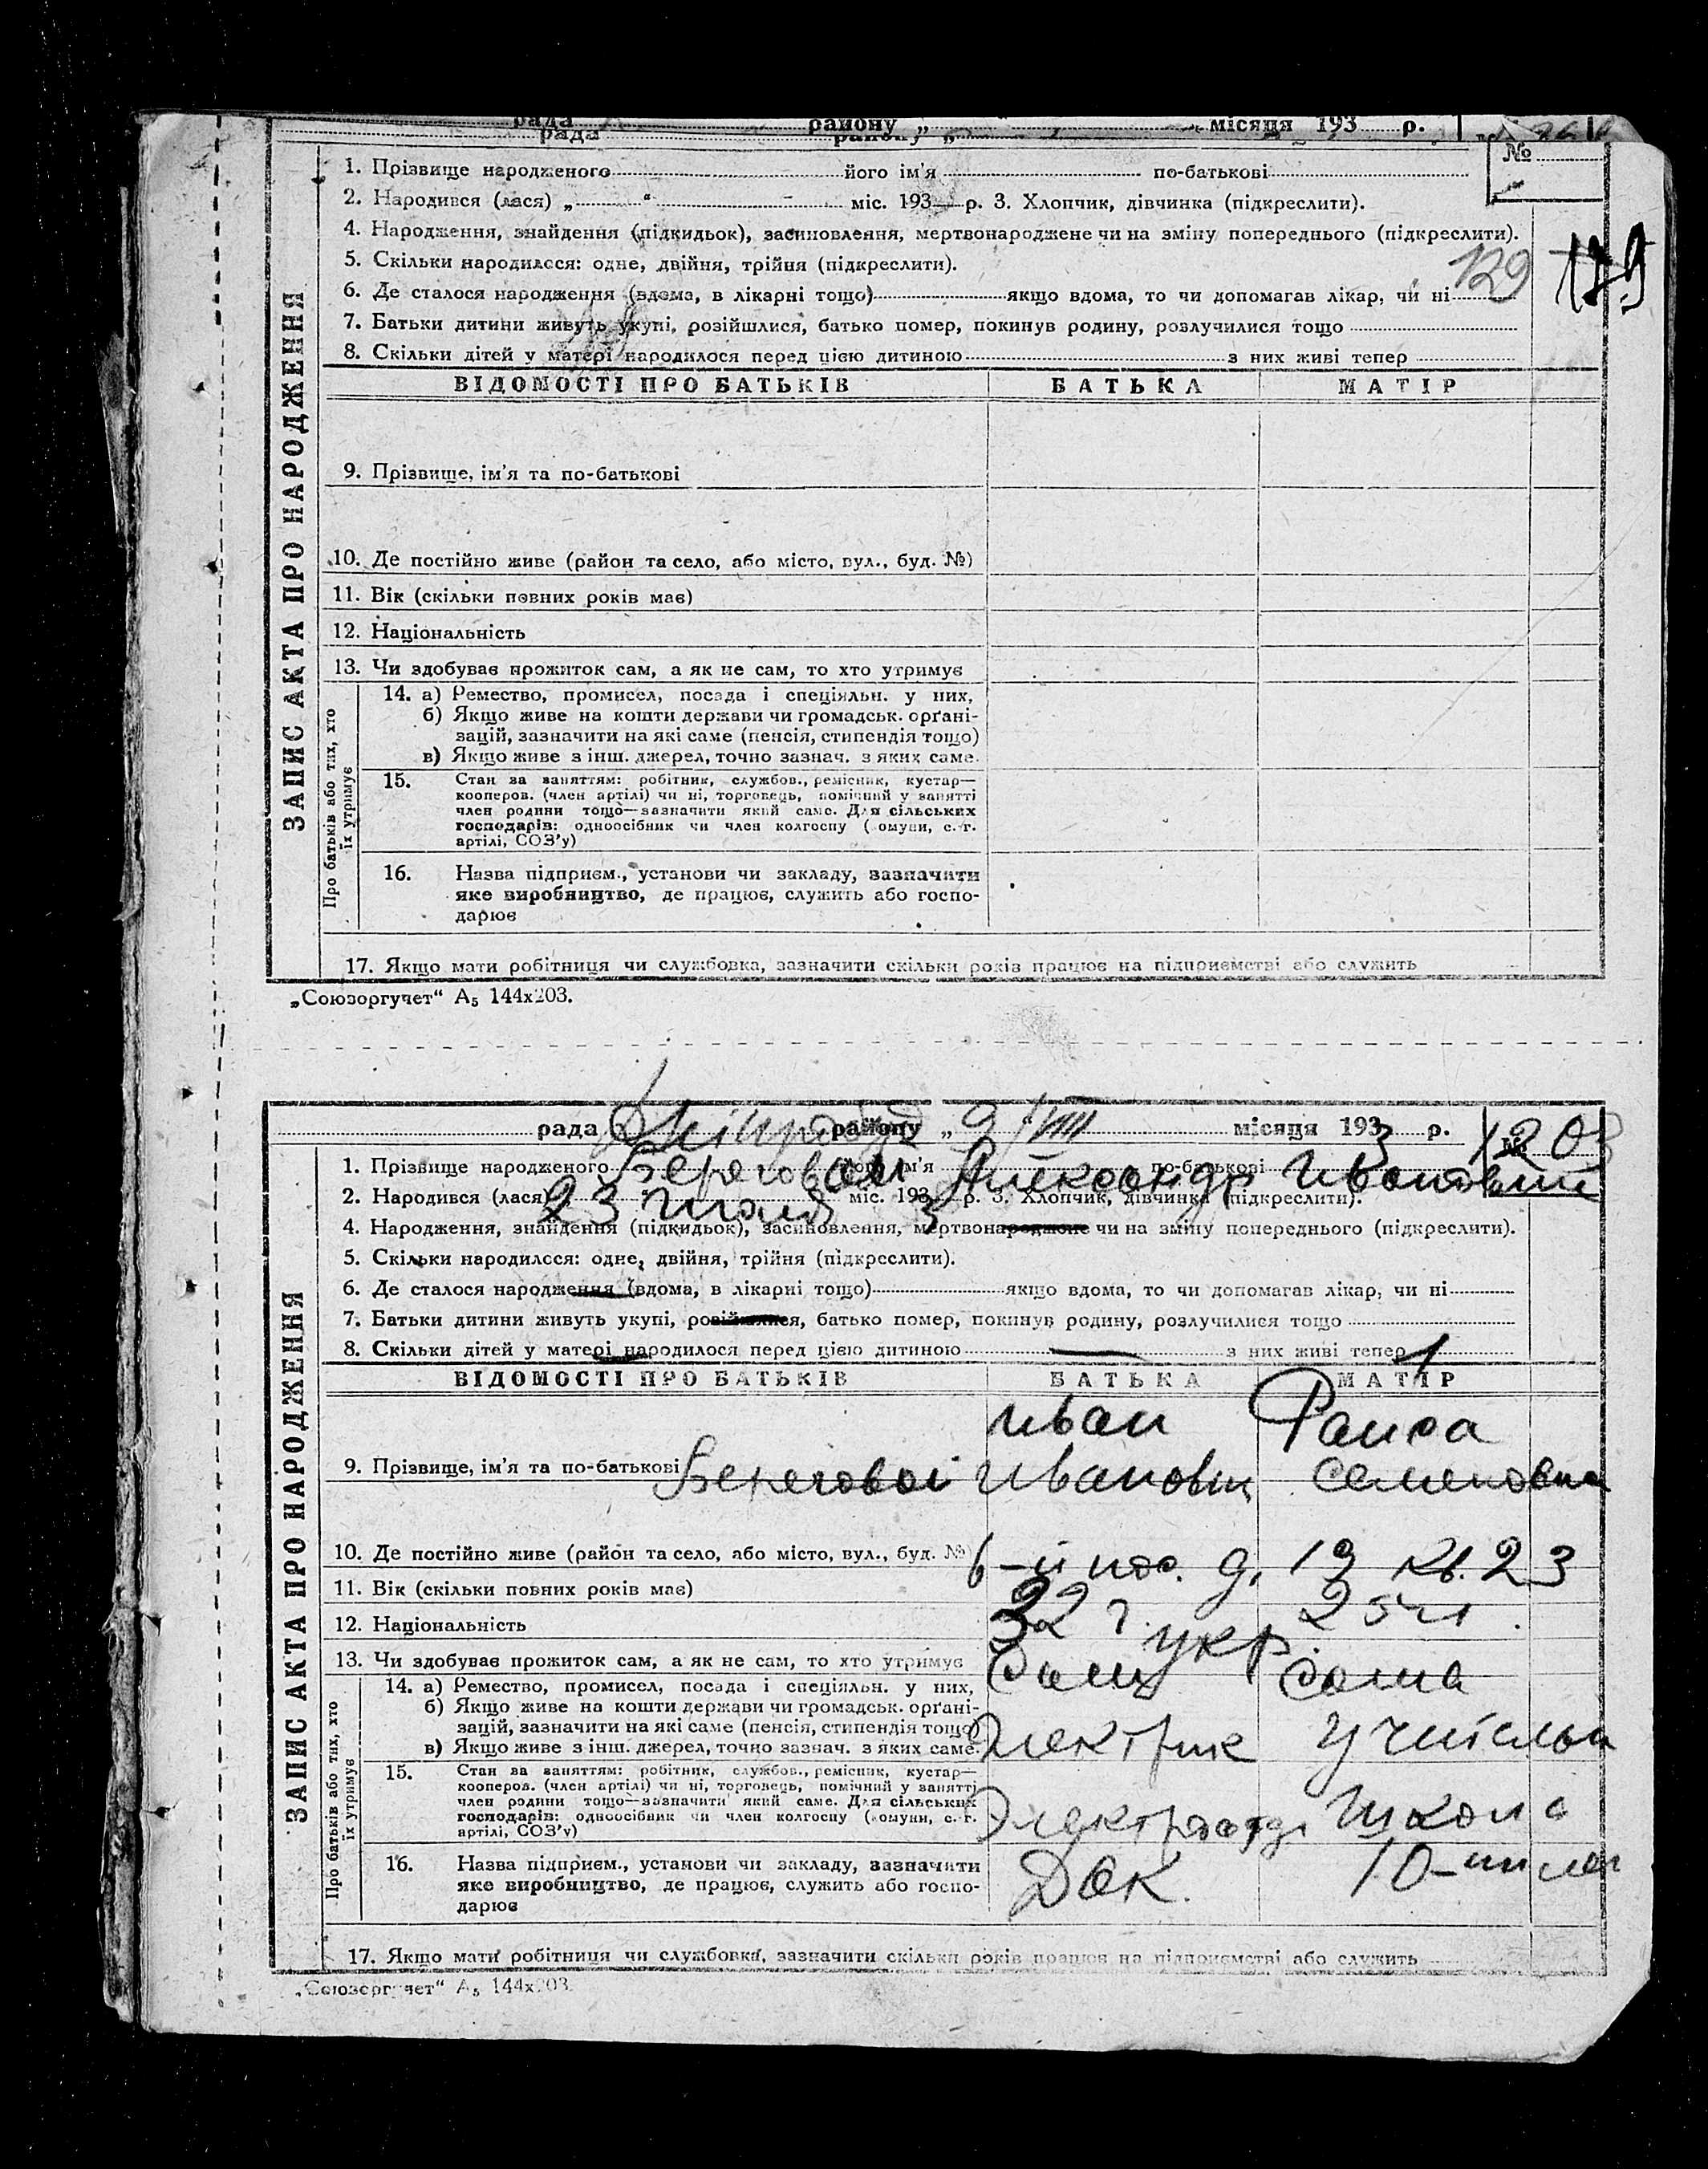 рада району „ місяця 193 р.
рада району „
№
1. Прізвище народженого його ім'я по-батькові
2. Народився (лася) „ “ міс. 193 р. 3. Хлопчик, дівчинка (підкреслити).
4. Народження, знайдення (підкидьок), засиновлення, мертвонароджене чи на зміну попереднього (підкреслити).
5. Скільки народилося: одне, двійня, трійня (підкреслити).
129 179
6. Де сталося народження (вдома, в лікарні тощо) якщо вдома, то чи допомагав лікар, чи ні
7. Батьки дитини живуть укупі, розійшлися, батько помер, покинув родину, розлучилися тощо
8. Скільки дітей у матері народилося перед цією дитиною з них живі тепер
ЗАПИС АКТА ПРО НАРОДЖЕННЯ
ВІДОМОСТІ ПРО БАТЬКІВ БАТЬКА МАТІР
9. Прізвище, ім'я та по-батькові
10. Де постійно живе (район та село, або місто, вул., буд. №)
11. Вік (скільки повних років має)
12. Національність
13. Чи здобуває прожиток сам, а як не сам, то хто утримує
Про батьків або тих, хто
їх утримує
14. а) Ремество, промисел, посада і спеціяльн. у них,
б) Якщо живе на кошти держави чи громадськ. орґані-
зацій, зазначити на які саме (пенсія, стипендія тощо)
в) Якщо живе з інш. джерел, точно зазнач. з яких саме.
15. Стан за заняттям: робітник, службов., ремісник, кустар—
кооперов. (член артілі) чи ні, торговець, помічний у занятті
член родини тощо—зазначити який саме. Для сільських
господарів: одноосібник чи член колгоспу (омуни, с.-г.
артілі, СОЗ'у)
16. Назва підприєм., установи чи закладу, зазначити
яке виробництво, де працює, служить або госпо-
дарює
17. Якщо мати робітниця чи службовка, зазначити скільки років працює на підприємстві або служить
„Союзоргучет“ А₅ 144х203.
рада району „ 9/VIII місяця 1933 р. № 1203
1. Прізвище народженого Береговой його ім'я Александр по-батькові Иванович
2. Народився (лася) 23 Июля міс. 1933 р. 3. Хлопчик, дівчинка (підкреслити).
4. Народження, знайдення (підкидьок), засиновлення, мертвонароджене чи на зміну попереднього (підкреслити).
5. Скільки народилося: одне, двійня, трійня (підкреслити).
6. Де сталося народження (вдома, в лікарні тощо) якщо вдома, то чи допомагав лікар, чи ні
7. Батьки дитини живуть укупі, розійшлися, батько помер, покинув родину, розлучилися тощо
8. Скільки дітей у матері народилося перед цією дитиною — з них живі тепер 1
ЗАПИС АКТА ПРО НАРОДЖЕННЯ
ВІДОМОСТІ ПРО БАТЬКІВ БАТЬКА МАТІР
Иван Раиса
9. Прізвище, ім'я та по-батькові Береговой Иванович Семеновна
10. Де постійно живе (район та село, або місто, вул., буд. №) 6-й пос. д. 19 кв. 23
11. Вік (скільки повних років має) 32 г.
12. Національність укр.
13. Чи здобуває прожиток сам, а як не сам, то хто утримує Сам Сама
Про батьків або тих, хто
їх утримує
14. а) Ремество, промисел, посада і спеціяльн. у них,
б) Якщо живе на кошти держави чи громадськ. орґані-
зацій, зазначити на які саме (пенсія, стипендія тощо)
в) Якщо живе з інш. джерел, точно зазнач. з яких саме. Электрик
15. Стан за заняттям: робітник, службов., ремісник, кустар—
кооперов. (член артілі) чи ні, торговець, помічний у занятті
член родини тощо—зазначити який саме. Для сільських
господарів: одноосібник чи член колгоспу (омуни, с.-г. Школа
артілі, СОЗ'у)
16. Назва підприєм., установи чи закладу, зазначити
яке виробництво, де працює, служить або госпо-
дарює
17. Якщо мати робітниця чи службовка, зазначити скільки років працює на підприємстві або служить
„Союзоргучет“ А₅ 144х203.